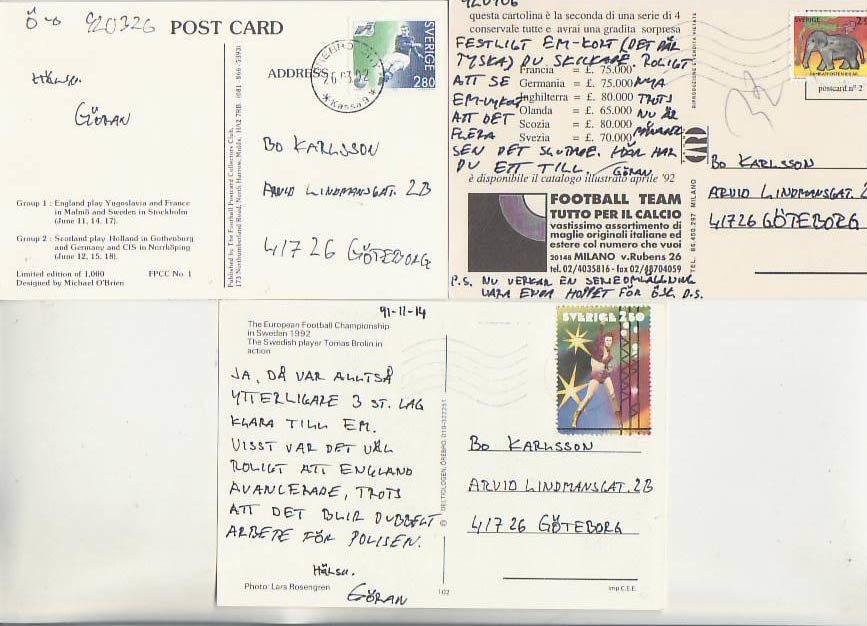 920326
POST CARD
Hälsn.
GÖRAN
ADDRESS
SVERIGE
280
26 03 92
Kassa 9
BO KARLSSON
ARVID LINDMANSGAT. 2B
41726 GÖTEBORG
Group 1 : England play Yugoslavia and France
in Malmö and Sweden in Stockholm
(June 11, 14, 17).
Group 2 : Scotland play Holland in Gothenburg
and Germany and CIS in Norrköping
(June 12, 15, 18).
Limited edition of 1,000
FPCC No. 1
Designed by Michael O'Brien
Published by The Football Postcard Collectors Club,
173 Northumberland Road, North Harrow, Middx. HA2 7RB. (081) 866-5393)
questa cartolina è la seconda di una serie di 4
conservale tutte e avrai una gradita sorpresa
FESTLIGT EM-KORT (DET DÄR
TYSKA) DU SKICKADE. ROLIGT
ATT SE NYA
EM-VYKORT TROTS
ATT DET NU ÄR
FLERA MÅNADER
SEN DET SLUTADE. HÄR HAR
DU ETT TILL. GÖRAN
Francia = £. 75.000
Germania = £. 75.000
Inghilterra = £. 80.000
Olanda = £. 65.000
Scozia = £. 80.000
Svezia = £. 70.000
è disponibile il catalogo illustrato aprile '92
FOOTBALL TEAM
TUTTO PER IL CALCIO
vastissimo assortimento di
maglie originali italiane ed
estere col numero che vuoi
20148 MILANO v.Rubens 26
tel. 02/4035816 - fax 02/48704059
P.S. NU VERKAR EN SERIEOMLÄGGNING
VARA ENDA HOPPET FÖR ÖSK. D.S.
RIPRODUZIONE VIETATA
CARD
TEL. 86.450.297 MILANO
SVERIGE
postcard n° 2
BO KARLSSON
ARVID LINDMANSGAT. 2
41726 GÖTEBORG
91-11-14
The European Football Championship
in Sweden 1992
The Swedish player Tomas Brolin in
action
JA, DÅ VAR ALLTSÅ
YTTERLIGARE 3 ST. LAG
KLARA TILL EM.
VISST VAR DET VÄL
ROLIGT ATT ENGLAND
AVANCERADE, TROTS
ATT DET BLIR DUBBELT
ARBETE FÖR POLISEN.
Hälsn.
GÖRAN
Photo: Lars Rosengren
102
© DELTIOLOGEN, ÖREBRO, 019-322251
SVERIGE 2.50
BO KARLSSON
ARVID LINDMANSGAT. 2B
41726 GÖTEBORG
imp C.E.E.